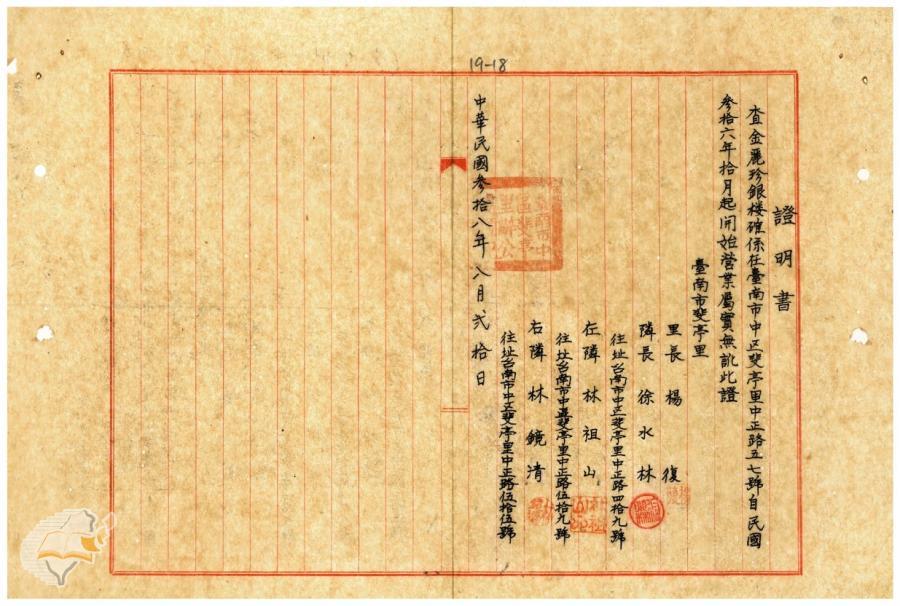 19-18
證明書
查金麗珍銀楼確係在臺南市中区斐亭里中正路五七號自民國
參拾六年拾月起開始營業屬實無訛此證
臺南市斐亭里
里長 楊復
隣長 徐水林
住址台南市中区斐亭里中正路四拾九號
左隣 林祖山
住址台南市中區斐亭里中正路伍拾九號
右隣 林鏡清
住址台南市中区斐亭里中正路伍拾伍號
中華民國參拾八年八月弍拾日